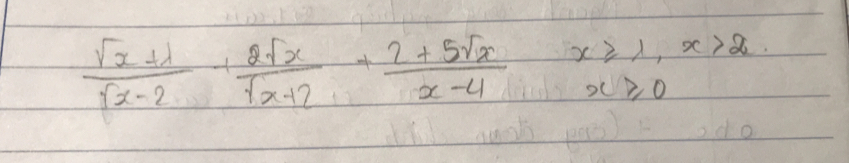 (√x + 1)/(√x - 2) + 2√x/(√x + 2) + (2 + 5√x)/(x - 4) x ≥ 1, x > 2.
x ≥ 0